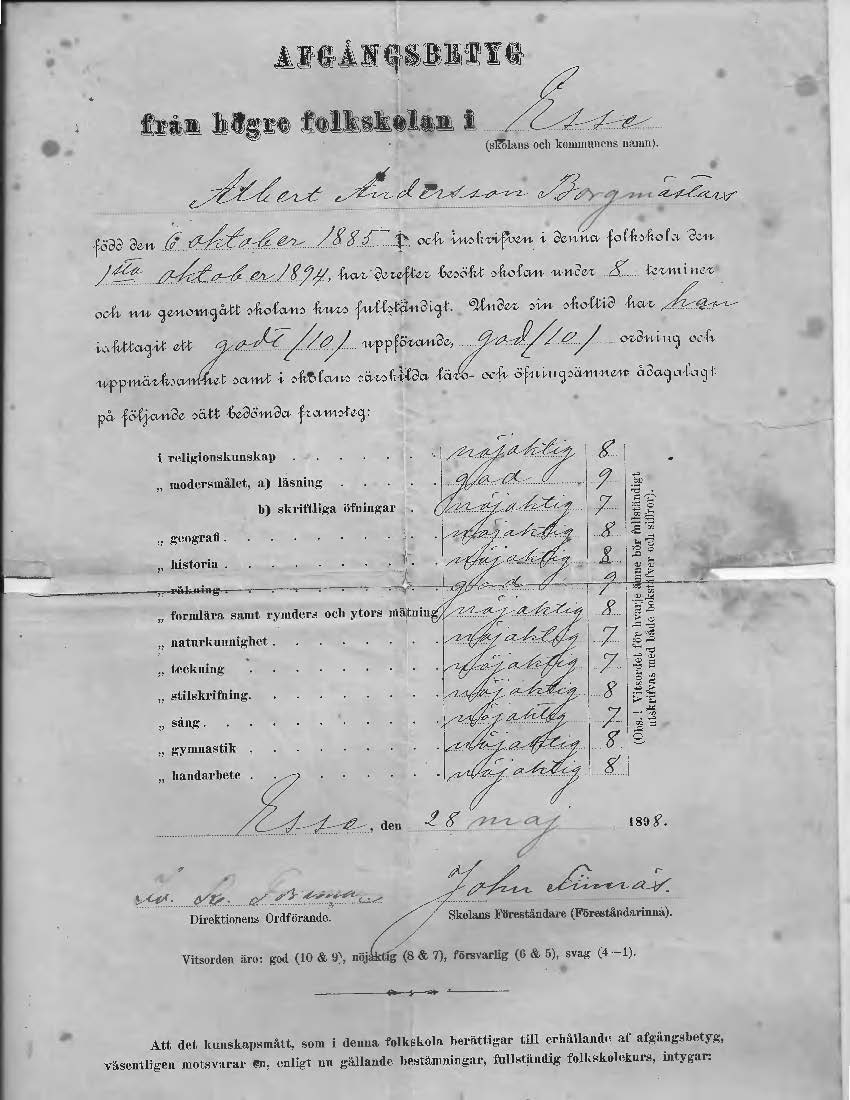 AFGÅNGSBETYG
från högre folkskolan i Esse
(skolans och kommunens namn).
Albert Andersson Borgmästars
född den 6 oktober 1885 och inskrifven i denna folkskola den
1sta oktober 1894, har derefter besökt skolan under 8 terminer
och nu genomgått skolans kurs fullständigt. Under sin skoltid har han
iakttagit ett godt (10) uppförande, god (10) ordning och
uppmärksamhet samt i skolans särskilda läro- och öfningsämnen ådagalagt
på följande sätt bedömda framsteg:
i religionskunskap . . . . . . nöjaktig 8
„ modersmålet, a) läsning . . . . . god 9
b) skriftliga öfningar . nöjaktig 7
„ geografi . . . . . . . . nöjaktig 8
„ historia . . . . . . . . nöjaktig 8
„ räkning . . . . . . . . god 9
„ formlära samt rymders och ytors mätning nöjaktig 8
„ naturkunnighet . . . . . . nöjaktig 7
„ teckning . . . . . . . nöjaktig 7
„ stilskrifning. . . . . . . nöjaktig 8
„ sång . . . . . . . . . nöjaktig 7
„ gymnastik . . . . . . . nöjaktig 8
„ handarbete . . . . . . . nöjaktig 8
(Obs.! Vitsordet för hvarje ämne bör fullständigt
utskrifvas med både bokstäfver och siffror).
Esse, den 28 maj 1898.
John Finnäs.
Direktionens Ordförande. Skolans Föreståndare (Föreståndarinna).
Vitsorden äro: god (10 & 9), nöjaktig (8 & 7), försvarlig (6 & 5), svag (4—1).
Att det kunskapsmått, som i denna folkskola berättigar till erhållande af afgångsbetyg,
väsentligen motsvarar en, enligt nu gällande bestämningar, fullständig folkskolekurs, intygar: